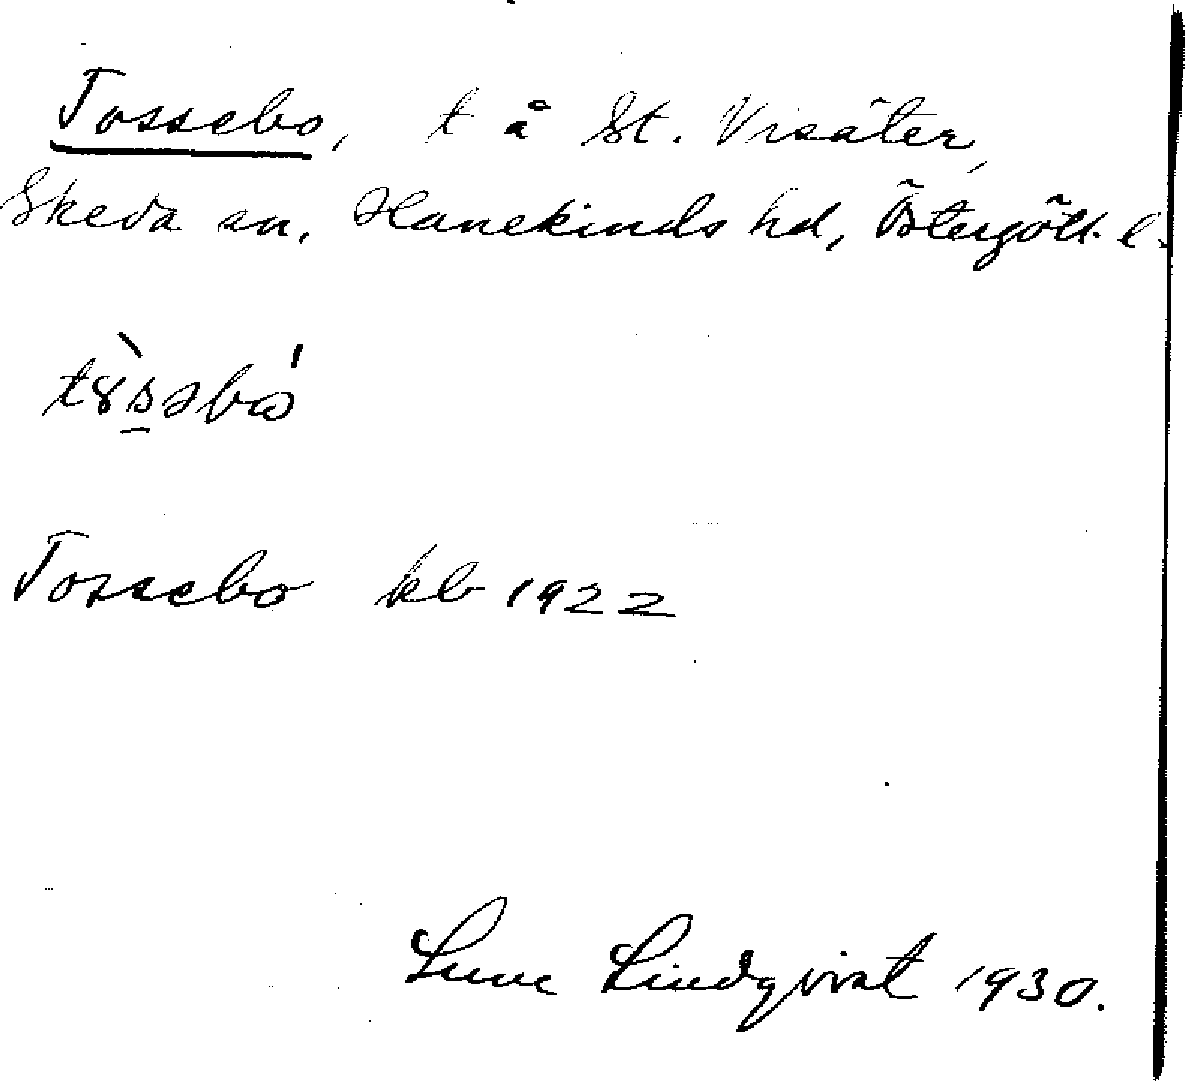 Tossebo, t å St. Visäter,
Skeda sn, Hanekinds hd, Östergötl. l.
Tossebo kb 1922
Sune Lindqvist 1930.